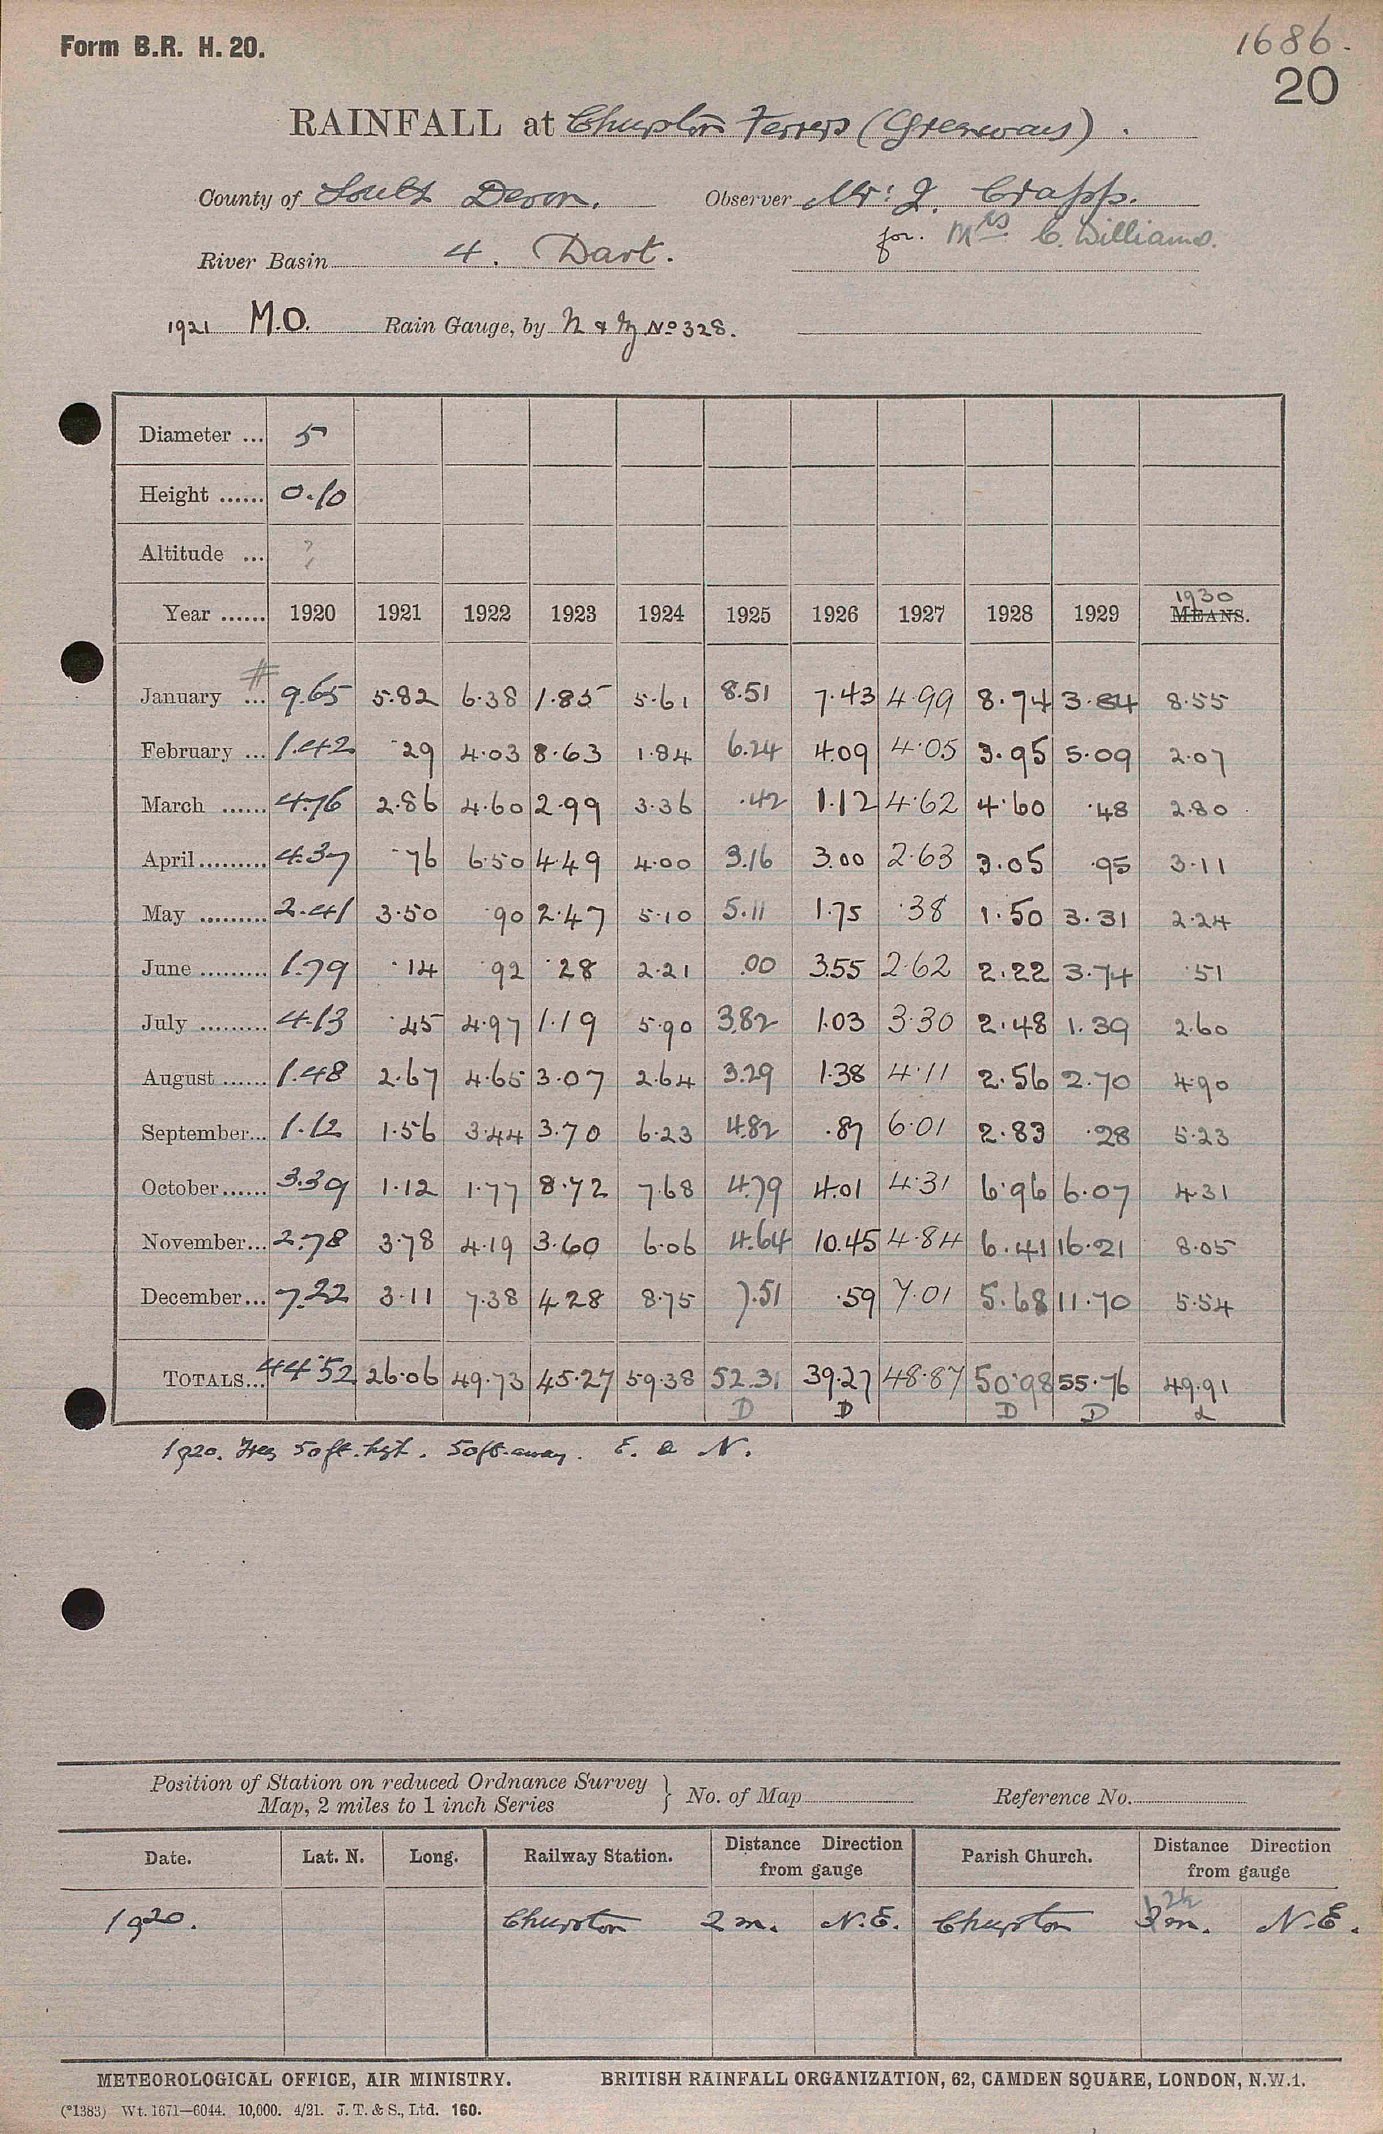 Form B.R. H. 20.
1686.
20
RAINFALL at Churston Ferrers (Greenway).
County of South Devon. Observer Mr. J. Crapp.
for. Mrs C. Williams.
River Basin 4. Dart.
1921 M.O. Rain Gauge, by N & Z No 328.
Diameter ... 5
Height ...... 0.10
Altitude ... ?
1930
Year ...... 1920 1921 1922 1923 1924 1925 1926 1927 1928 1929 MEANS.
January ... # 9.65 5.82 6.38 1.85 5.61 8.51 7.43 4.99 8.74 3.84 8.55
February ... 1.42 .29 4.03 8.63 1.84 6.24 4.09 4.05 3.95 5.09 2.07
March ...... 4.76 2.86 4.60 2.99 3.36 .42 1.12 4.62 4.60 .48 2.80
April ......... 4.37 .76 6.50 4.49 4.00 3.16 3.00 2.63 3.05 .95 3.11
May ......... 2.41 3.50 .90 2.47 5.10 5.11 1.75 .38 1.50 3.31 2.24
June ......... 1.79 .14 .92 .28 2.21 .00 3.55 2.62 2.22 3.74 .51
July ......... 4.13 .45 4.97 1.19 5.90 3.82 1.03 3.30 2.48 1.39 2.60
August ...... 1.48 2.67 4.65 3.07 2.64 3.29 1.38 4.11 2.56 2.70 4.90
September... 1.12 1.56 3.44 3.70 6.23 4.82 .87 6.01 2.83 .28 5.23
October...... 3.39 1.12 1.77 8.72 7.68 4.79 4.01 4.31 6.96 6.07 4.31
November... 2.78 3.78 4.19 3.60 6.06 4.64 10.45 4.84 6.41 16.21 8.05
December... 7.22 3.11 7.38 4.28 8.75 7.51 .59 7.01 5.68 11.70 5.54
TOTALS... 44.52 26.06 49.73 45.27 59.38 52.31 39.27 48.87 50.98 55.76 49.91
D D D D
1920. Trees 50 ft. hgt. 50 ft. away. E. & N.
Position of Station on reduced Ordnance Survey
Map, 2 miles to 1 inch Series } No. of Map Reference No.
Date. Lat. N. Long. Railway Station. Distance from gauge Direction Parish Church. Distance from gauge Direction
1920. Churston 2 m. N.E. Churston m. N.E.
METEOROLOGICAL OFFICE, AIR MINISTRY. BRITISH RAINFALL ORGANIZATION, 62, CAMDEN SQUARE, LONDON, N.W.1.
(*1383) Wt. 1671—6044. 10,000. 4/21. J. T. & S., Ltd. 160.